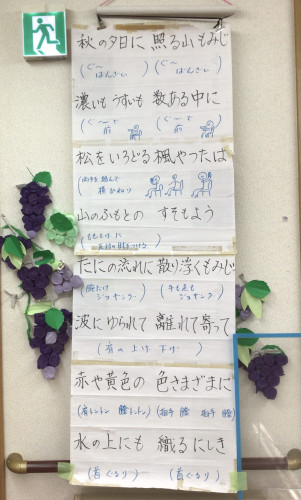 秋の夕日に 照る山もみじ
(ぐ〜ばんざい) (ぐ〜ばんざい)
濃いも うすいも 数ある中に
(ぐ〜 前) (ぐ〜 前)
松をいろどる 楓やつたは
横
山のふもとの すそもよう
たにの流れに 散り浮くもみじ
(腕だけジョギング) (手も足もジョギング)
波にゆられて 離れて寄って
(首の上げ下げ)
赤や黄色の 色さまざまに
(肩トントン 膝トントン) (拍手 膝 拍手 膝)
水の上にも 織るにしき
(首ぐるり) (首ぐるり)